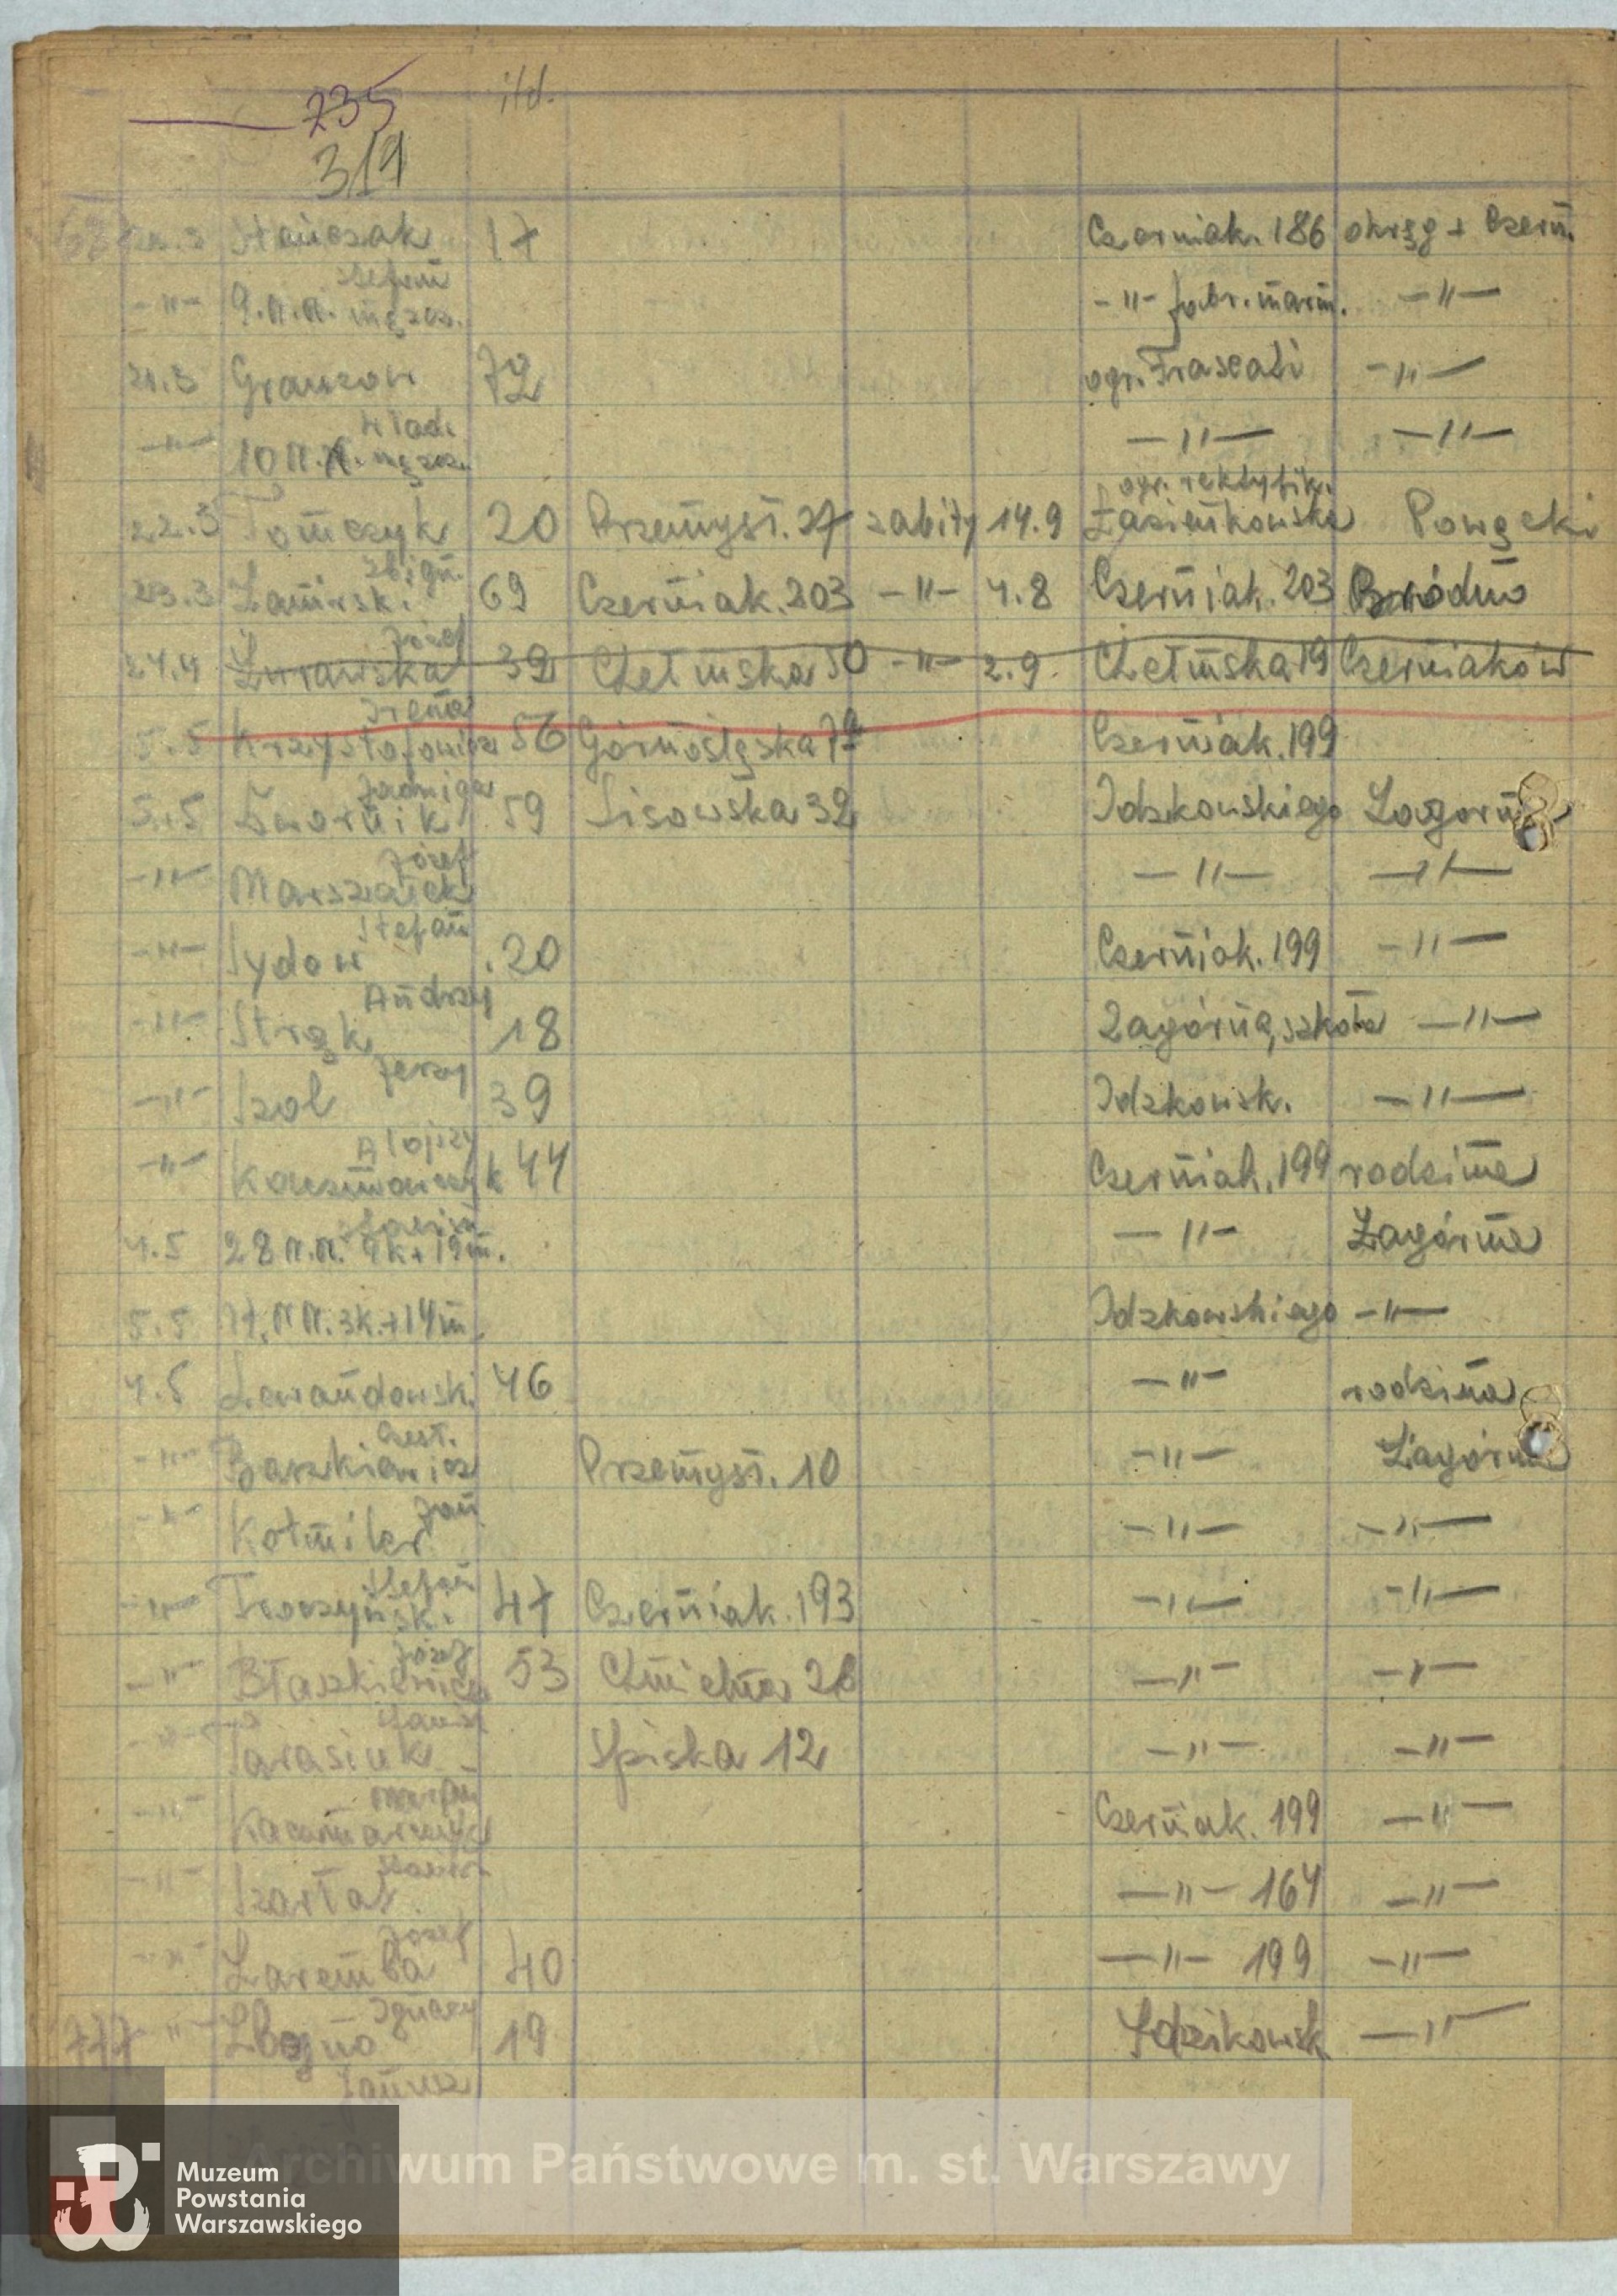 235
319
Stańczak 17 Czerniak. 186 okręg + Czern.
Stefan
-"- 9.N.N. męzcz. -"- fabr. marm. -"-
21.3 Grauzow 72 ogr. Frascati -"-
Wład.
-"- 10 N.N. męzcz. -"- -"-
ogr. rektyfik.
22.3 Tomczyk 20 Przemysł. 27 zabity 14.9 Łazienkowska Powązki
Zbign.
23.3 Zamirski 69 Czerniak. 203 -"- 4.8 Czerniak. 203 Bródno
Józef
24.4 Żurawska 32 Chełmska 50 -"- 2.9. Chełmska 19 Czerniaków
Irena
5.5 Krzysztofowicz 56 Górnośląska Czerniak. 199
Jadwiga
5.5 Zwornik 59 Lisowska 32 Idzkowskiego Zagórn
Józef
-"- Marszałek -"- -"-
Stefan
-"- Sydow 20 Czerniak. 199 -"-
Andrzej
-"- Strąk 18 Zagórna, szkoła -"-
Jerzy
-"- Szol 39 Idzkowsk. -"-
Alojzy
-"- Kaczmarczyk 44 Czerniak. 199 rodzina
4.5 28 N.N. 9k. + 19m. -"- Zagórna
5.5 17. N.N. 3k. + 14m. Idzkowskiego -"-
4.5 Lewandowski 46 -"- rodzina
Czesł.
-"- Baszkiewicz Przemysł. 10 -"- Zagórna
Jan
-"- Kotmiler -"- -"-
Stefan
-"- Troszyński 47 Czerniak. 193 -"- -"-
Józef
-"- Błaszkiewicz 53 Chmielna 26 -"- -"-
-"- Tarasiuk Spiska 12 -"- -"-
Marian
-"- Kaczmarczyk Czerniak. 199 -"-
-"- Szarłat -"- 164 -"-
Józef
-"- Zaremba 40 -"- 199 -"-
Ignacy
777 -"- 19 Idzikowsk -"-
Janusz
Archiwum Państwowe m. st. Warszawy
Muzeum
Powstania
Warszawskiego